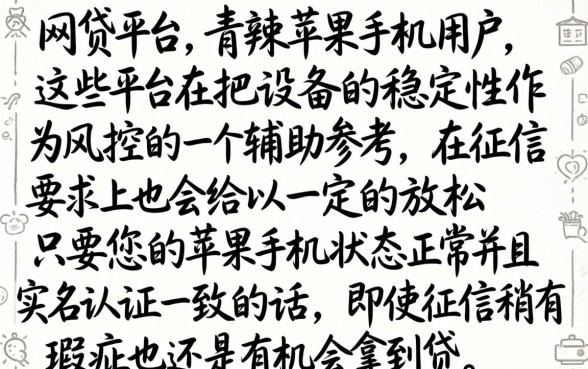 网贷平台，青辣苹果手机用户，
这些平台在把设备的稳定性作
为风控的一个辅助参考，在征信
要求上也会给以一定的放松
只要您的苹果手机状态正常并且
实名认证一致的话，即使征信稍有
瑕疵也还是有机会拿到贷。